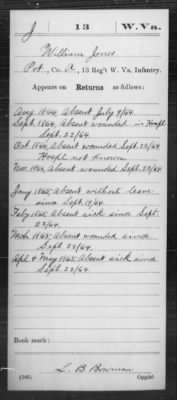 J 13 W. Va.
William Jones
Pvt., Co. A, 13 Reg't W. Va. Infantry.
Appears on Returns as follows:
Aug. 1864, Absent July 9/64.
Sept. 1864, Absent wounded in Hospl
Sept. 22/64.
Oct. 1864, Absent wounded Sept. 22/64
Hospl not known.
Nov. 1864, Absent wounded Sept. 22/64
Jany 1865, Absent without leave
since Sept. 19/64.
Feby 1865, Absent sick since Sept.
22/64.
Mch 1865, Absent wounded since
Sept 22/64.
Apl & May 1865, Absent sick since
Sept. 22/64.
Book mark:
L. B. Bowman
(546) Copyist.